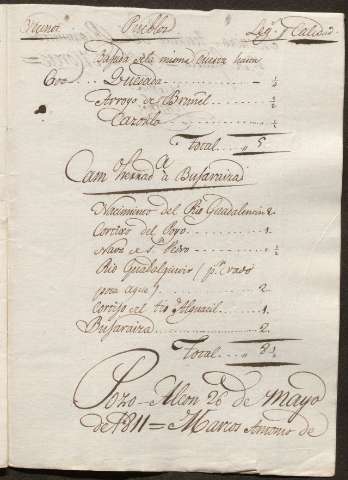 Vecinos Pueblos Leg.s y Calidad
Bajada de la misma Cuesta hasta
600 Quesada ½
Arroyo de Bruñel ½
Cazorla ½
Total 5
Cam.o a
Bujaraiza
Nacimiento del Rio Guadalentin 2
Cortixo del Poyo 1.
Nava de S.n Pedro 1 ½
Rio Guadalquivir (p.r vado
poca agua) 2.
Cortijo del tio Alguacil 1.
Bujaraiza 2.
Total
Pozo-Alcon 26 de Mayo
de 1811 = Marcos Antonio de